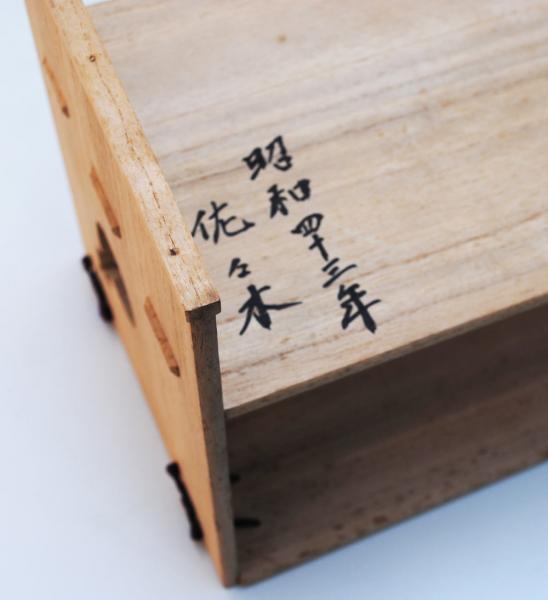 昭和四十三年
佐々木